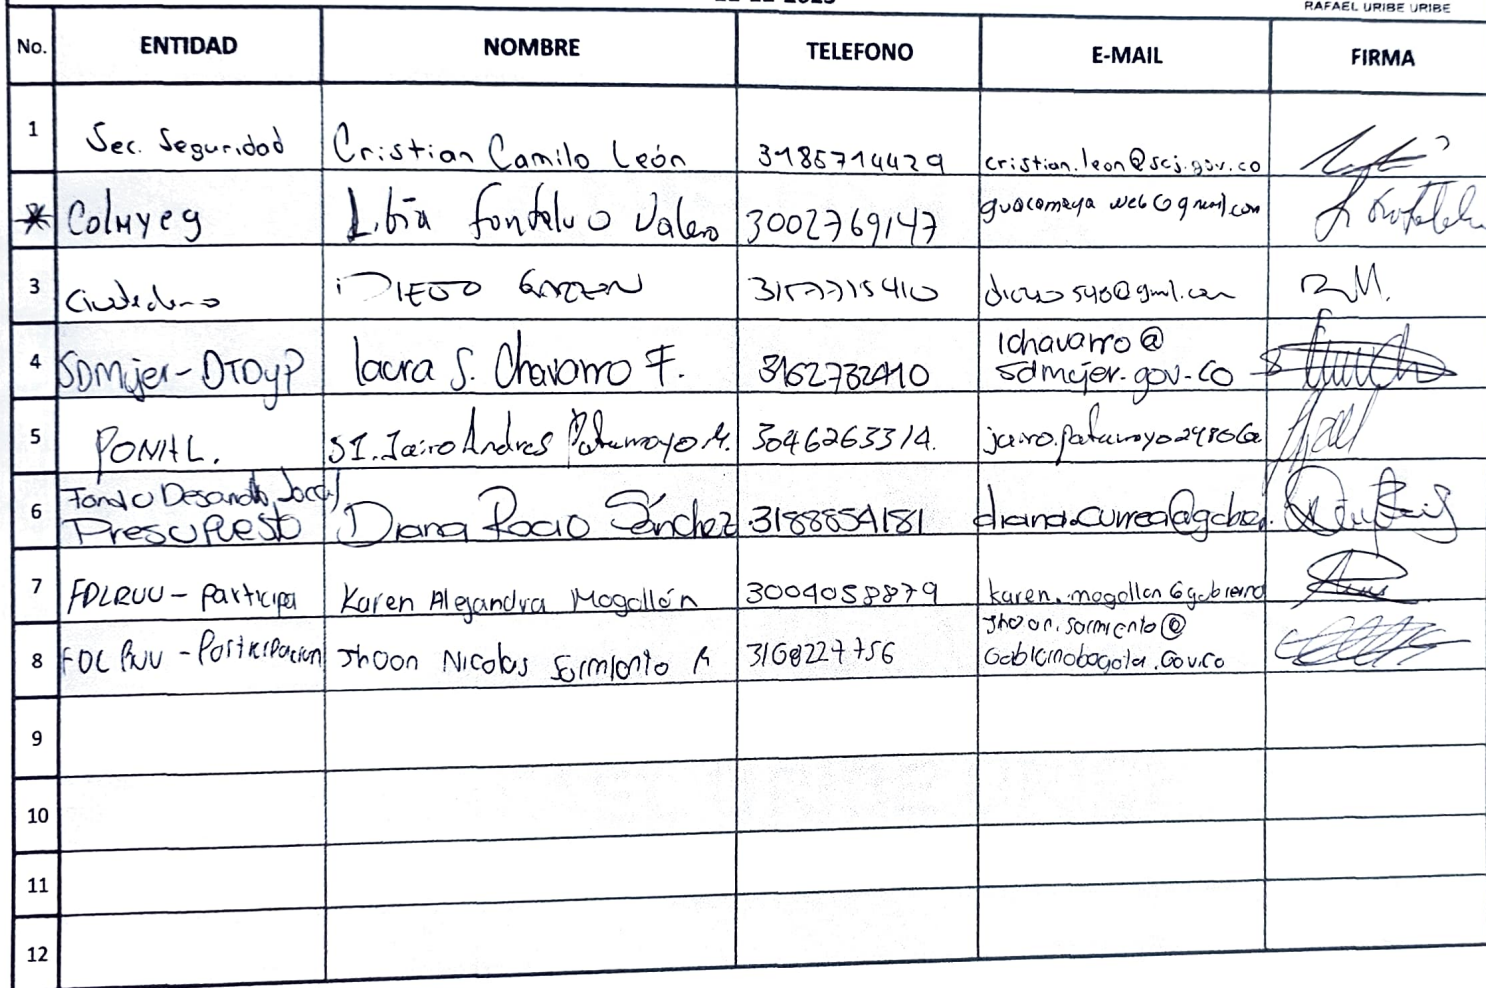 RAFAEL URIBE URIBE
No. ENTIDAD NOMBRE TELEFONO E-MAIL FIRMA
1 Sec. Seguridad Cristian Camilo León 3185714429 cristian.leon@scj.gov.co
Colmyeg Libia Valero 3002769147 guacamaya web@gmail.com
3 Ciudadano DIEGO GARZON
4 SDMujer-DTDyP laura S. Chavarro F. 3162732410 lchavarro@
sdmujer.gov.co
5 PONAL. SI. Jairo Andres Patarroyo M. 3046263314.
6 Fondo Desarrollo Local
Presupuesto Diana Rocio Sánchez 3188854181 diana.currea@gobier.
7 FDLRUU - participa Karen Alejandra Mogollón 3004058879 karen.mogollon@gobierno
8 Jhoan Nicolas Sarmiento 3168227756 Jhoan.sarmiento@
Gobiernobogota.Gov.co
9
10
11
12